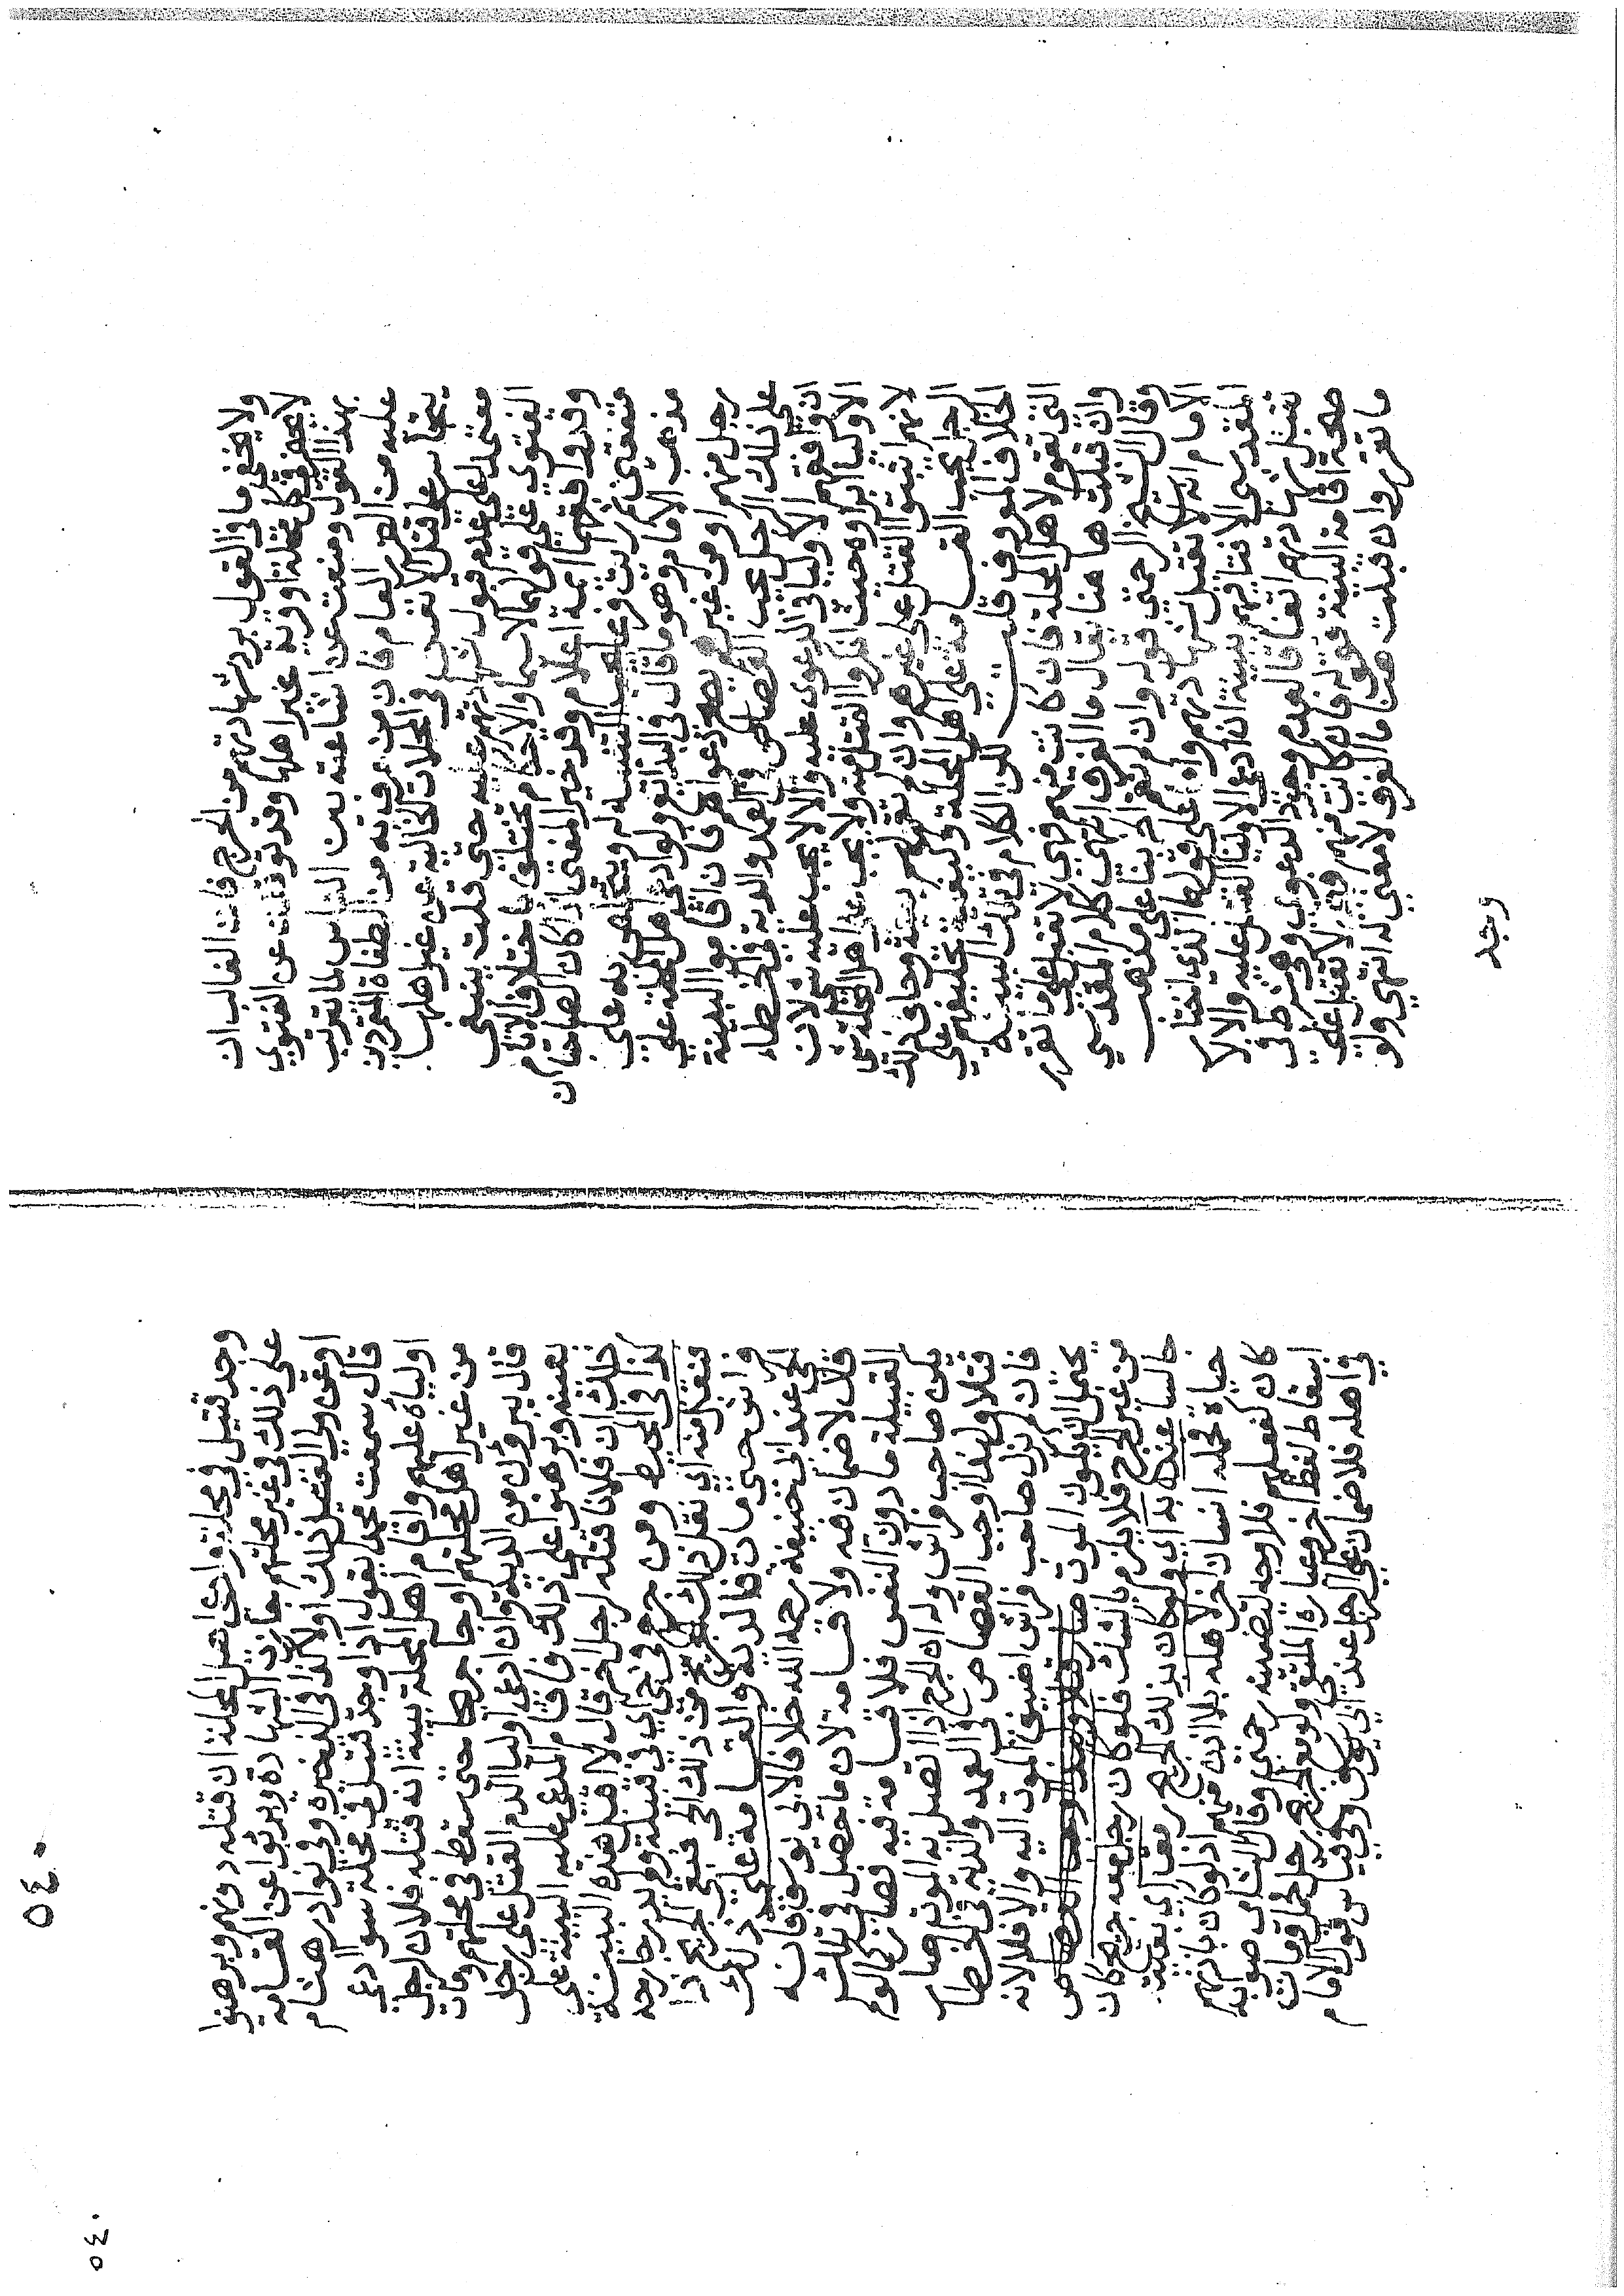 ولا يخفى ما في القول برد شهادتهم من الحرج فان الغالب ان
لا يخفى قتل محلة او قرية غير اهلها وقد توقفت عن الفتوى
بهذا القول ومنعت عن اشاعته بين الناس لما يترتب
عليه من الضرر العام فان من عرف به من الطغاة المتمردين
يتجاسر على قتل الانفس في المحلات الخالية عن غير اهلها
معتمدا على علم قبول شهادتهم عليه حتى قلت ينبغي
الفتوى على قولهما لا سيما والاحكام تختلف باختلاف الايام
وقد وافقهما ائمة اعلام وقد خير المفتي اذا كان الصاحبان
متفقين ثم رايت في هامش له على
مذهب الامام وهو ما قال في البدائع ولو ادعى اهل المحلة على
رجل منهم او من غيرهم تصح دعواهم فان اقاموا البينة
على ذلك الرجل يجب القصاص في العمد والدية في الخطاء
ان وافقهم الاولياء في الدعوى عليه والا لا يجب عليه شي لان
الاولياء ابراوه حيث انكروا القتل منه ولا يجب على اهل المحلة شي
لانهم اثبتوا القتل على غيرهم وان لم يقم لهم بينة وحلف ذلك
الرجل يجب القسامة على اهل المحلة تحليفهم على
اختلاف المعروف قلت لكن الكلام في تلك البينة
التي تقوم لاهل المحلة فان كانت منهم فهي لا تقبل على ما تقرر
وان قبلت ها هنا يقال ما الفرق انتهى كلام المقدسي
وقال الشيخ الرحمتي قوله وان لم تقم بناء على مذهب
الامام انه لا تقبل شهادتهم واما على قولهما الذي اختار
المقدسي الافتاء بينة ان ادعى الاولياء القتل عليه والا لا
تقبل شهادتهم اتفاقا لعدم وجود الدعوى وهي شرط في
صحة اقامة البينة قوله فان كانت منهم فهي لا تقبل على
ما تقرر وان قبلت هنا ما الفرق لا معنى له انتهى ولو
وجد
وجد قتيل في محلة وادعى اهل المحلة ان قتله وبرهنوا
على ذلك في غير محلتهم جازت الشهادة ويبرئوا عن القسامة
ادعى ولي القتيل ذلك او لا كذا في الذخيرة وفي نوادر هشام
قال سمعت محمدا يقول اذا وجد قتيل في محلة سوا ادعى
اولياؤه عليهم واقام اهل المحلة بينة انه قتله فلان رجل
من غير اهل محلتهم او جاء جريحا حتى سقط في محلتهم ومات
قال يبرؤن من الدية وان ادعى اولياء الدم القتل على رجل
بعينه وبرهنوا على ذلك فاقام المدعى عليه البينة على
ان فلانا قتله لرجل اخر قال لا اقبل هذه البينة
كذا في المحيط ومن جرح في حي اي في قبيلة ولم يدر جارحه
فنقل منه اي نقل ذلك الجريح من ذلك الحي فبقي الجريح ذا
فراش حتى مات فالدية والقسامة على ذلك
الحي عند ابي حنيفة رحمه الله خلافا لابي يوسف فانه
قال لا ضمان فيه ولا قسامة لان ما حصل في تلك
القبيلة ما دون النفس فلا قسامة فيه فصار كما لو لم
يكن صاحب فراش وله ان الجرح اذا اتصل به الموت صار
قتلا ولهذا وجب القصاص في العمد والدية في الخطا
فان لم يزل صاحب فراش اضيف الموت اليه والا فلا لانه
يحتمل ان يكون الموت
من غير الجرح فلا يلزم بالشك فلو كان رجل معه جريح كان
جالسا عنده به اي ولو كان بذلك الجريح رمق اي بقية
حياة فحمله انسان اخر لاهله بلا اذن منهم اذ لو كان باذنهم
كان كفعلهم فلا وجه لتضمينه رحمتي وقال الشامي صوابه
اسقاط لفظ اخر وعبارة الملتقى ولو مع الجريح رجل فحمله ومات
في اهله فلا ضمان على الرجل عند ابي يوسف وفي قياس قول الامام
٥٤٠
٥٤٠